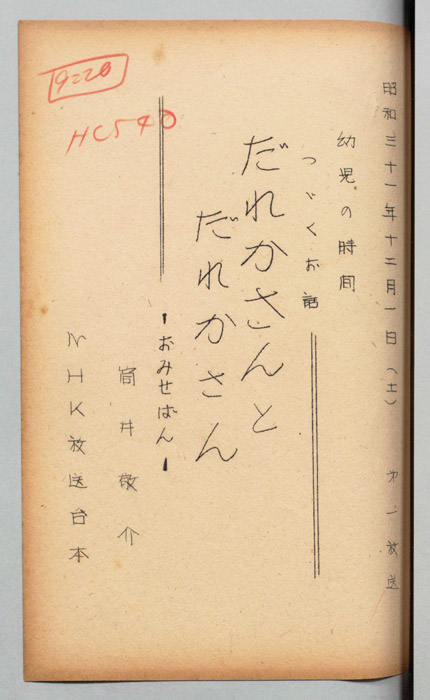 昭和三十一年十二月一日(土) 第一放送
幼児の時間
つゞくお話
だれかさんと
だれかさん
ーおみせばんー
筒井敬介
NHK放送台本
19=20
HC540